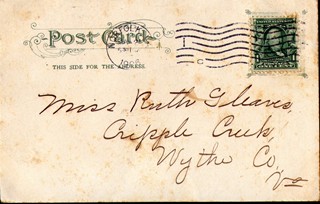 Post Card
THIS SIDE FOR THE ADDRESS.
Miss Ruth Gleaves,
Cripple Creek,
Wythe Co,
Va